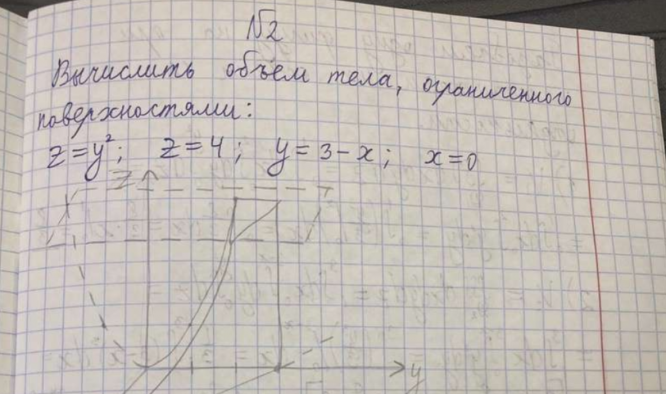 №2
Вычислить объем тела, ограниченного
поверхностями:
z=y²; z=4; y=3-x; x=0
z
y